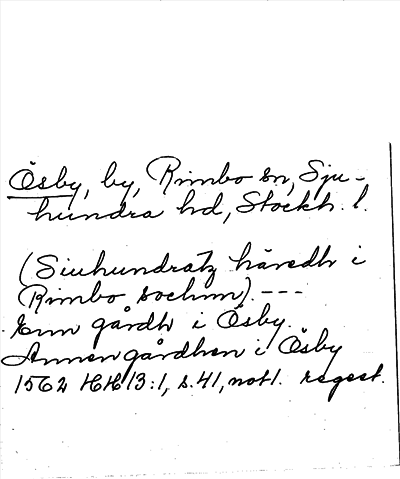 Ösby, by, Rimbo sn, Sju-
hundra hd, Stockh. l.
(Siuhundratz häredh i
Rimbo sochnn). ---
Enn gårdh i Ösby.
Annen gårdhen i Ösby
1562 HH 13:1, s. 41, not 1. regest.